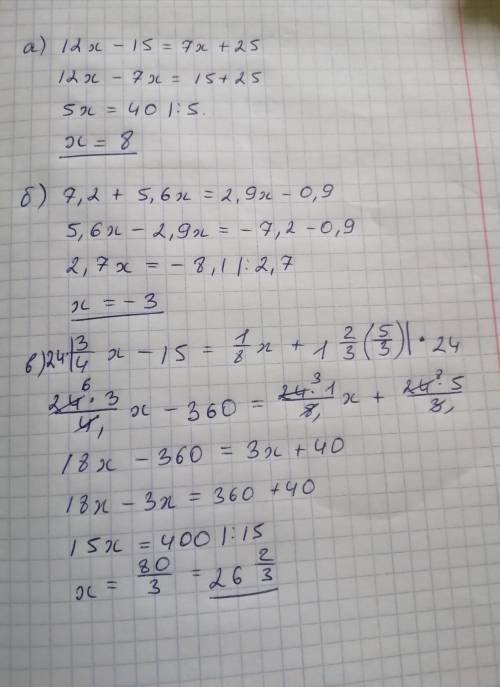 а) 12x - 15 = 7x + 25
12x - 7x = 15 + 25
5x = 40 |:5.
x = 8
б) 7,2 + 5,6x = 2,9x - 0,9
5,6x - 2,9x = -7,2 - 0,9
2,7x = -8,1 |:2,7
x = -3
в) 24·| 3/4 x - 15 = 1/8 x + 1 2/3 (5/3) | · 24
24⁶·3/4₁ x - 360 = 24³·1/8₁ x + 24⁸·5/3₁
18x - 360 = 3x + 40
18x - 3x = 360 + 40
15x = 400 |:15
x = 80/3 = 26 2/3